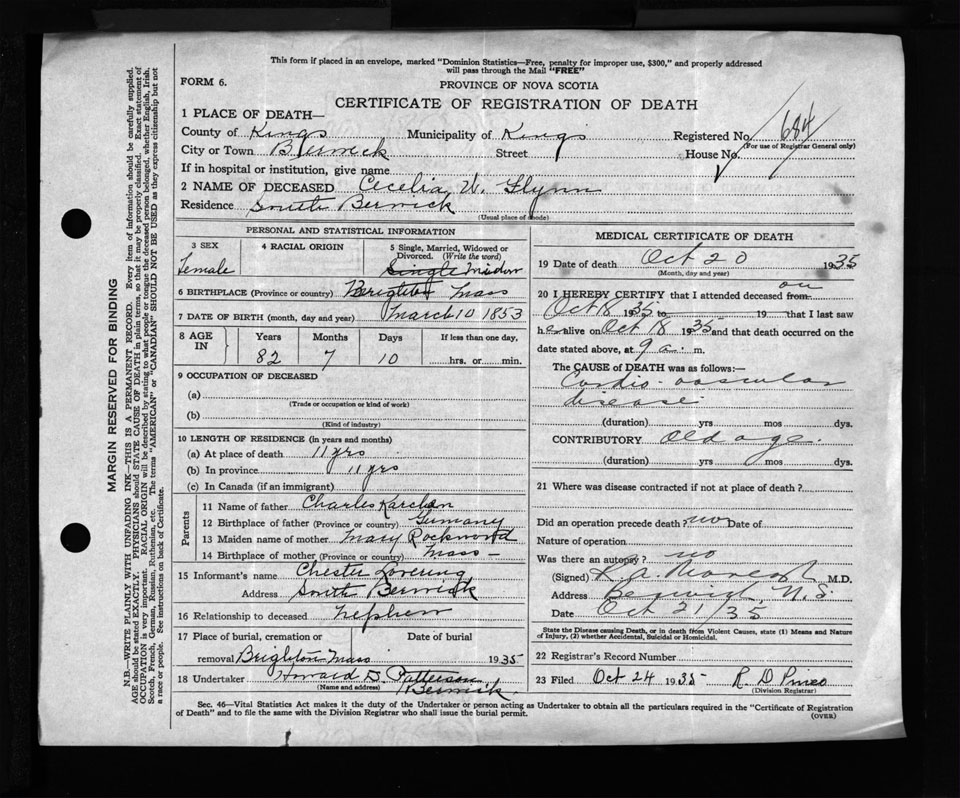 This form if placed in an envelope, marked "Dominion Statistics—Free, penalty for improper use, $300," and properly addressed
will pass through the Mail "FREE"
FORM 6.
PROVINCE OF NOVA SCOTIA
CERTIFICATE OF REGISTRATION OF DEATH
1 PLACE OF DEATH—
County of Kings Municipality of Kings Registered No. 684
(For use of Registrar General only)
City or Town Berwick Street House No.
If in hospital or institution, give name
2 NAME OF DECEASED Cecelia W. Flynn
Residence South Berwick
(Usual place of abode)
PERSONAL AND STATISTICAL INFORMATION
3 SEX 4 RACIAL ORIGIN 5 Single, Married, Widowed or Divorced. (Write the word)
Female Single Widow
6 BIRTHPLACE (Province or country) Brighton Mass
7 DATE OF BIRTH (month, day and year) March 10 1853
8 AGE IN Years Months Days If less than one day,
82 7 10 hrs. or min.
9 OCCUPATION OF DECEASED
(a)
(Trade or occupation or kind of work)
(b)
(Kind of industry)
10 LENGTH OF RESIDENCE (in years and months)
(a) At place of death 11 yrs
(b) In province 11 yrs
(c) In Canada (if an immigrant)
Parents
11 Name of father Charles
12 Birthplace of father (Province or country) Germany
13 Maiden name of mother Mary Rockwood
14 Birthplace of mother (Province or country) Mass
15 Informant's name Chester Lovering
Address South Berwick
16 Relationship to deceased nephew
17 Place of burial, cremation or Date of burial
removal Brighton Mass 1935
18 Undertaker Howard D. Patterson
(Name and address) Berwick
MEDICAL CERTIFICATE OF DEATH
19 Date of death Oct 20 1935
(Month, day and year)
20 I HEREBY CERTIFY that I attended deceased from on
Oct 18 1935 to 19 that I last saw
her alive on Oct 18 1935 and that death occurred on
date stated above, at 9 a. m.
The CAUSE of DEATH was as follows:—
Cardio-vascular
disease
(duration) yrs mos dys.
CONTRIBUTORY Old age.
(duration) yrs mos dys.
21 Where was disease contracted if not at place of death?
Did an operation precede death? no Date of
Nature of operation
Was there an autopsy? no
(Signed) M.D.
Address Berwick, N.S.
Date Oct 21/35
State the Disease causing Death, or in death from Violent Causes, state (1) Means and Nature
of Injury, (2) whether Accidental, Suicidal or Homicidal.
22 Registrar's Record Number
23 Filed Oct 24 1935 R. D. Pineo
(Division Registrar)
Sec. 46—Vital Statistics Act makes it the duty of the Undertaker or person acting as Undertaker to obtain all the particulars required in the "Certificate of Registration
of Death" and to file the same with the Division Registrar who shall issue the burial permit.
(OVER)
MARGIN RESERVED FOR BINDING
N.B.—WRITE PLAINLY WITH UNFADING INK—THIS IS A PERMANENT RECORD. Every item of information should be carefully supplied.
AGE should be stated EXACTLY. PHYSICIANS should STATE CAUSE OF DEATH in plain terms, so that it may be properly classified. Exact statement of
OCCUPATION is very important. RACIAL ORIGIN will be described by stating to what people or tongue the deceased person belonged, whether English, Irish,
Scotch, French, German, Russian, Ruthenian, etc. The terms "AMERICAN" or "CANADIAN" SHOULD NOT BE USED as they express citizenship but not
a race or people. See instructions on back of Certificate.